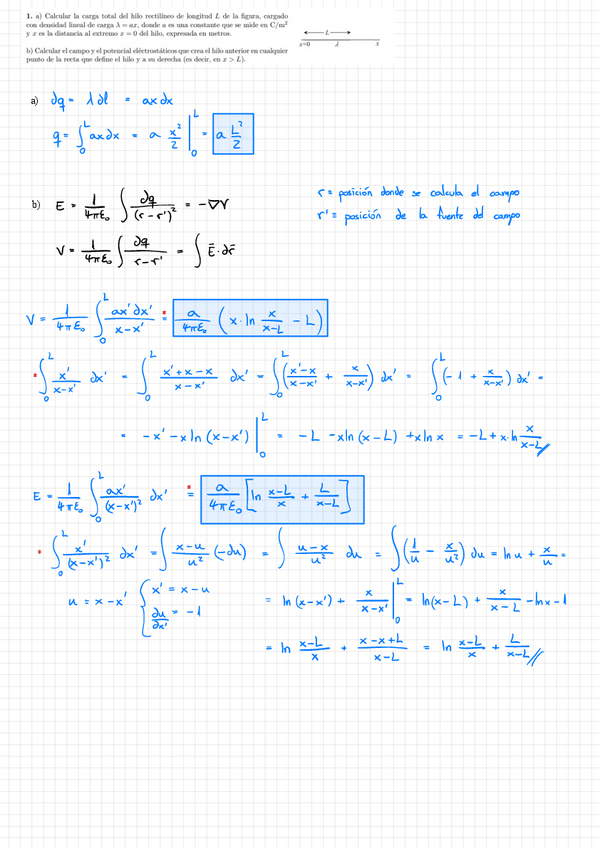 1. a) Calcular la carga total del hilo rectilíneo de longitud L de la figura, cargado
con densidad lineal de carga λ = ax, donde a es una constante que se mide en C/m²
y x es la distancia al extremo x = 0 del hilo, expresada en metros.
L
x=0 λ x
b) Calcular el campo y el potencial eléctrostáticos que crea el hilo anterior en cualquier
punto de la recta que define el hilo y a su derecha (es decir, en x > L).
a) ∂q = λ ∂l = ax∂x
q = ∫₀ᴸ ax∂x = a x²/2 |₀ᴸ = a L²/2
b) E = 1/4πε₀ ∫ ∂q/(r-r')² = -∇V
r = posición donde se calcula el campo
r' = posición de la fuente del campo
V = 1/4πε₀ ∫ ∂q/r-r' = ∫ E̅·∂r̅
V = 1/4πε₀ ∫₀ᴸ ax'∂x'/x-x' =* a/4πε₀ (x·ln x/x-L - L)
* ∫₀ᴸ x'/x-x' ∂x' = ∫₀ᴸ x'+x-x/x-x' ∂x' = ∫₀ᴸ (x'-x/x-x' + x/x-x') ∂x' = ∫₀ᴸ (-1 + x/x-x') ∂x' =
= -x' - x ln(x-x') |₀ᴸ = -L - xln(x-L) + xlnx = -L + x·ln x/x-L //
E = 1/4πε₀ ∫₀ᴸ ax'/(x-x')² ∂x' =* a/4πε₀ [ln x-L/x + L/x-L]
* ∫₀ᴸ x'/(x-x')² ∂x' = ∫ x-u/u² (-∂u) = ∫ u-x/u² ∂u = ∫ (1/u - x/u²) ∂u = ln u + x/u =
u = x-x' { x' = x-u
∂u/∂x' = -1
= ln(x-x') + x/x-x' |₀ᴸ = ln(x-L) + x/x-L - lnx - 1
= ln x-L/x + x-x+L/x-L = ln x-L/x + L/x-L //